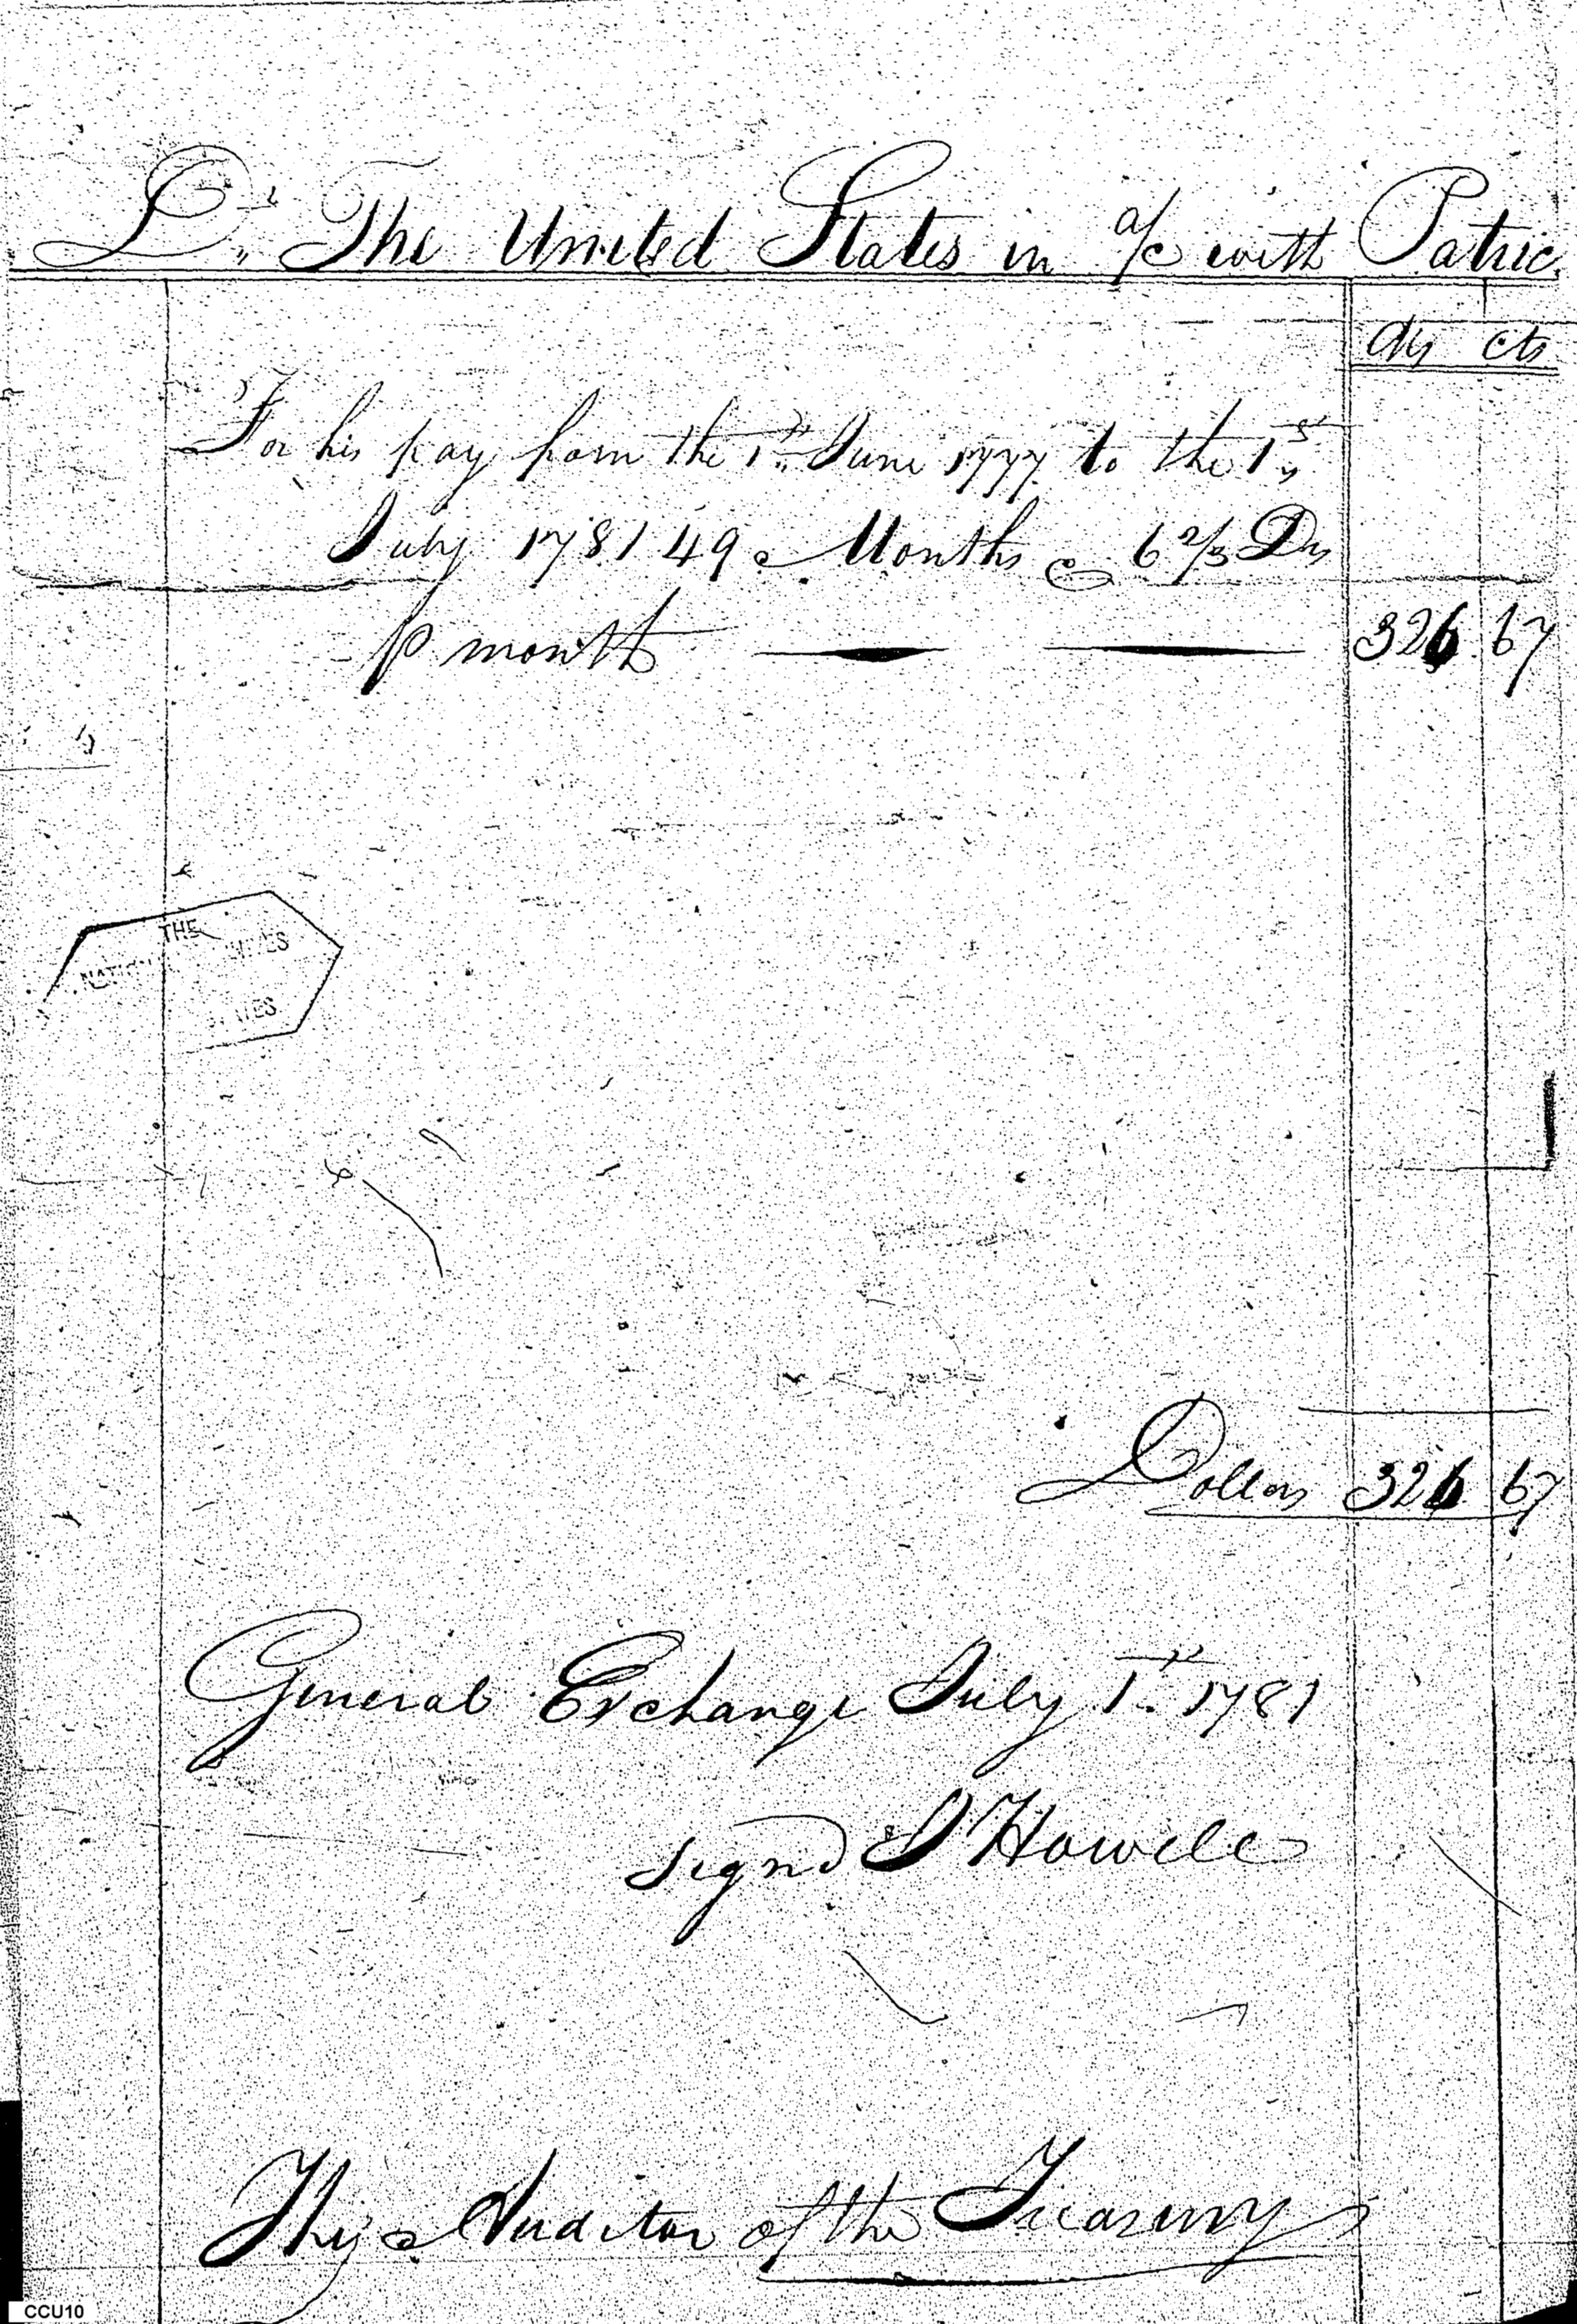 Dr. The United States in a/c with Patric
Drs cts
For his pay from the 1st June 1777 to the 1st
July 1781 49 Months @ 6 2/3 Drs
p month 326 67
THE
STATES
Dollars 326 67
General Exchange July 1st 1781
Signd J Howell
The Auditor of the Treasury
CCU10